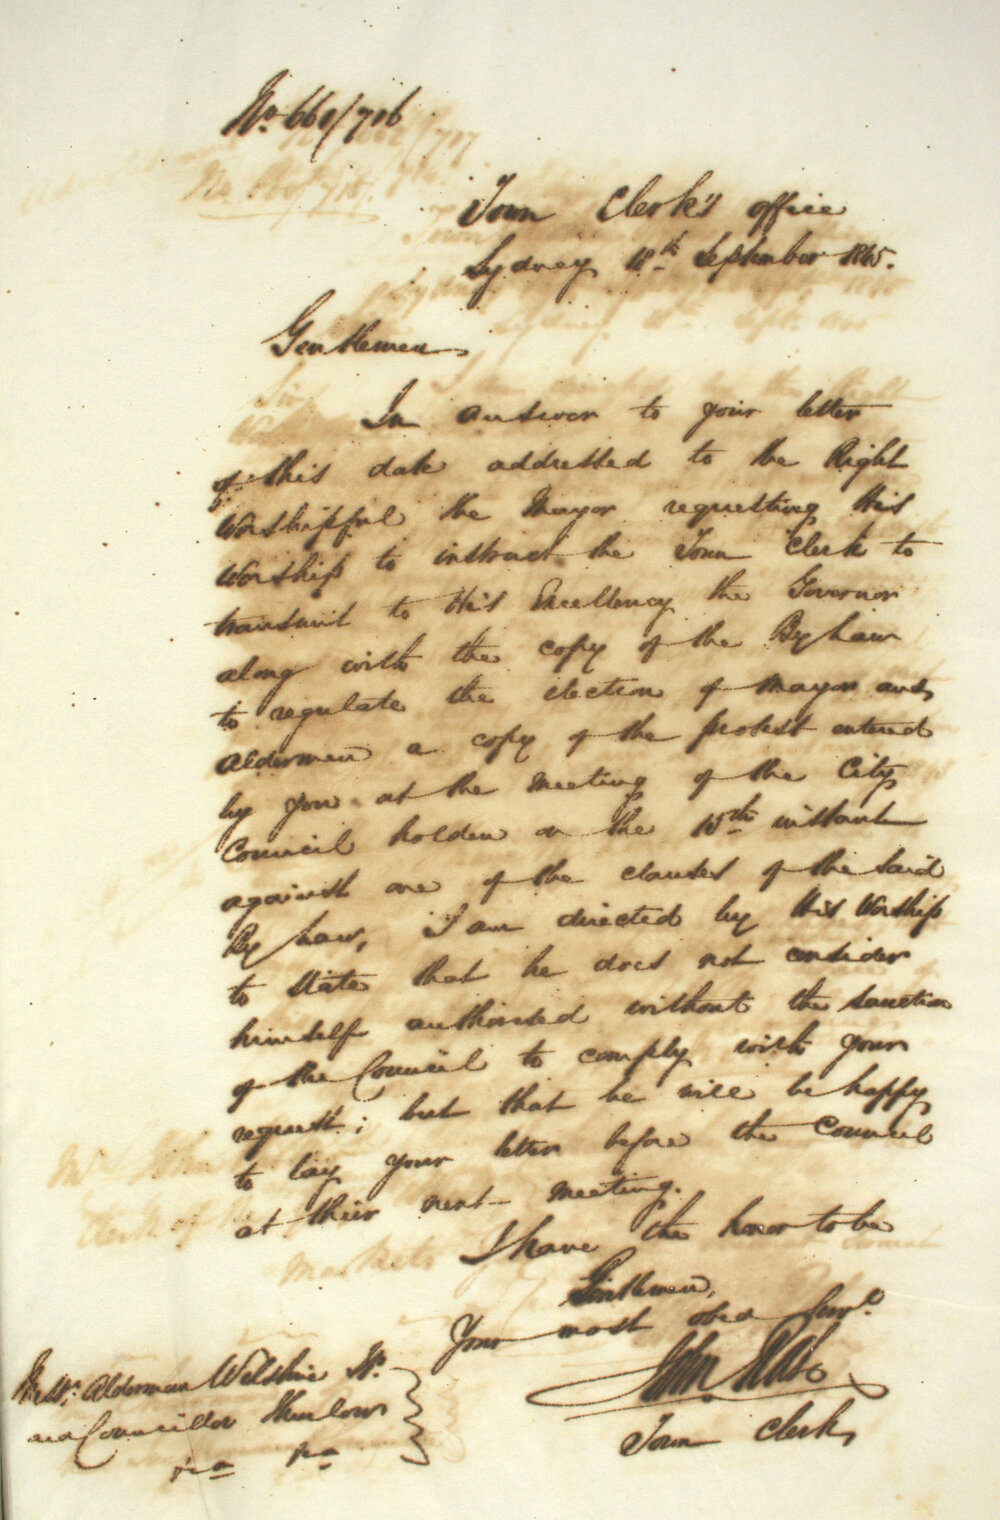 No. 661/716
Town Clerk's office
Sydney 18th September 1845.
Gentlemen
In answer to your letter
of this date addressed to the Right
Worshipful the Mayor requesting His
Worship to instruct the Town Clerk to
transmit to His Excellency the Governor
along with the copy of the By Law
to regulate the election of Mayor and
Aldermen a copy of the protest entered
by you at the Meeting of the City
Council holden on the 15th instant
against one of the clauses of the said
By Law, I am directed by His Worship
to state that he does not consider
himself authorised without the sanction
of the Council to comply with your
request; but that he will be happy
to lay your letter before the Council
at their next meeting.
I have the honor to be
Gentlemen,
Your most obed Servt.
John Rae
Town Clerk,
Messrs. Alderman Wilshire Jr.
and Councillor Thurlow
&ca &ca